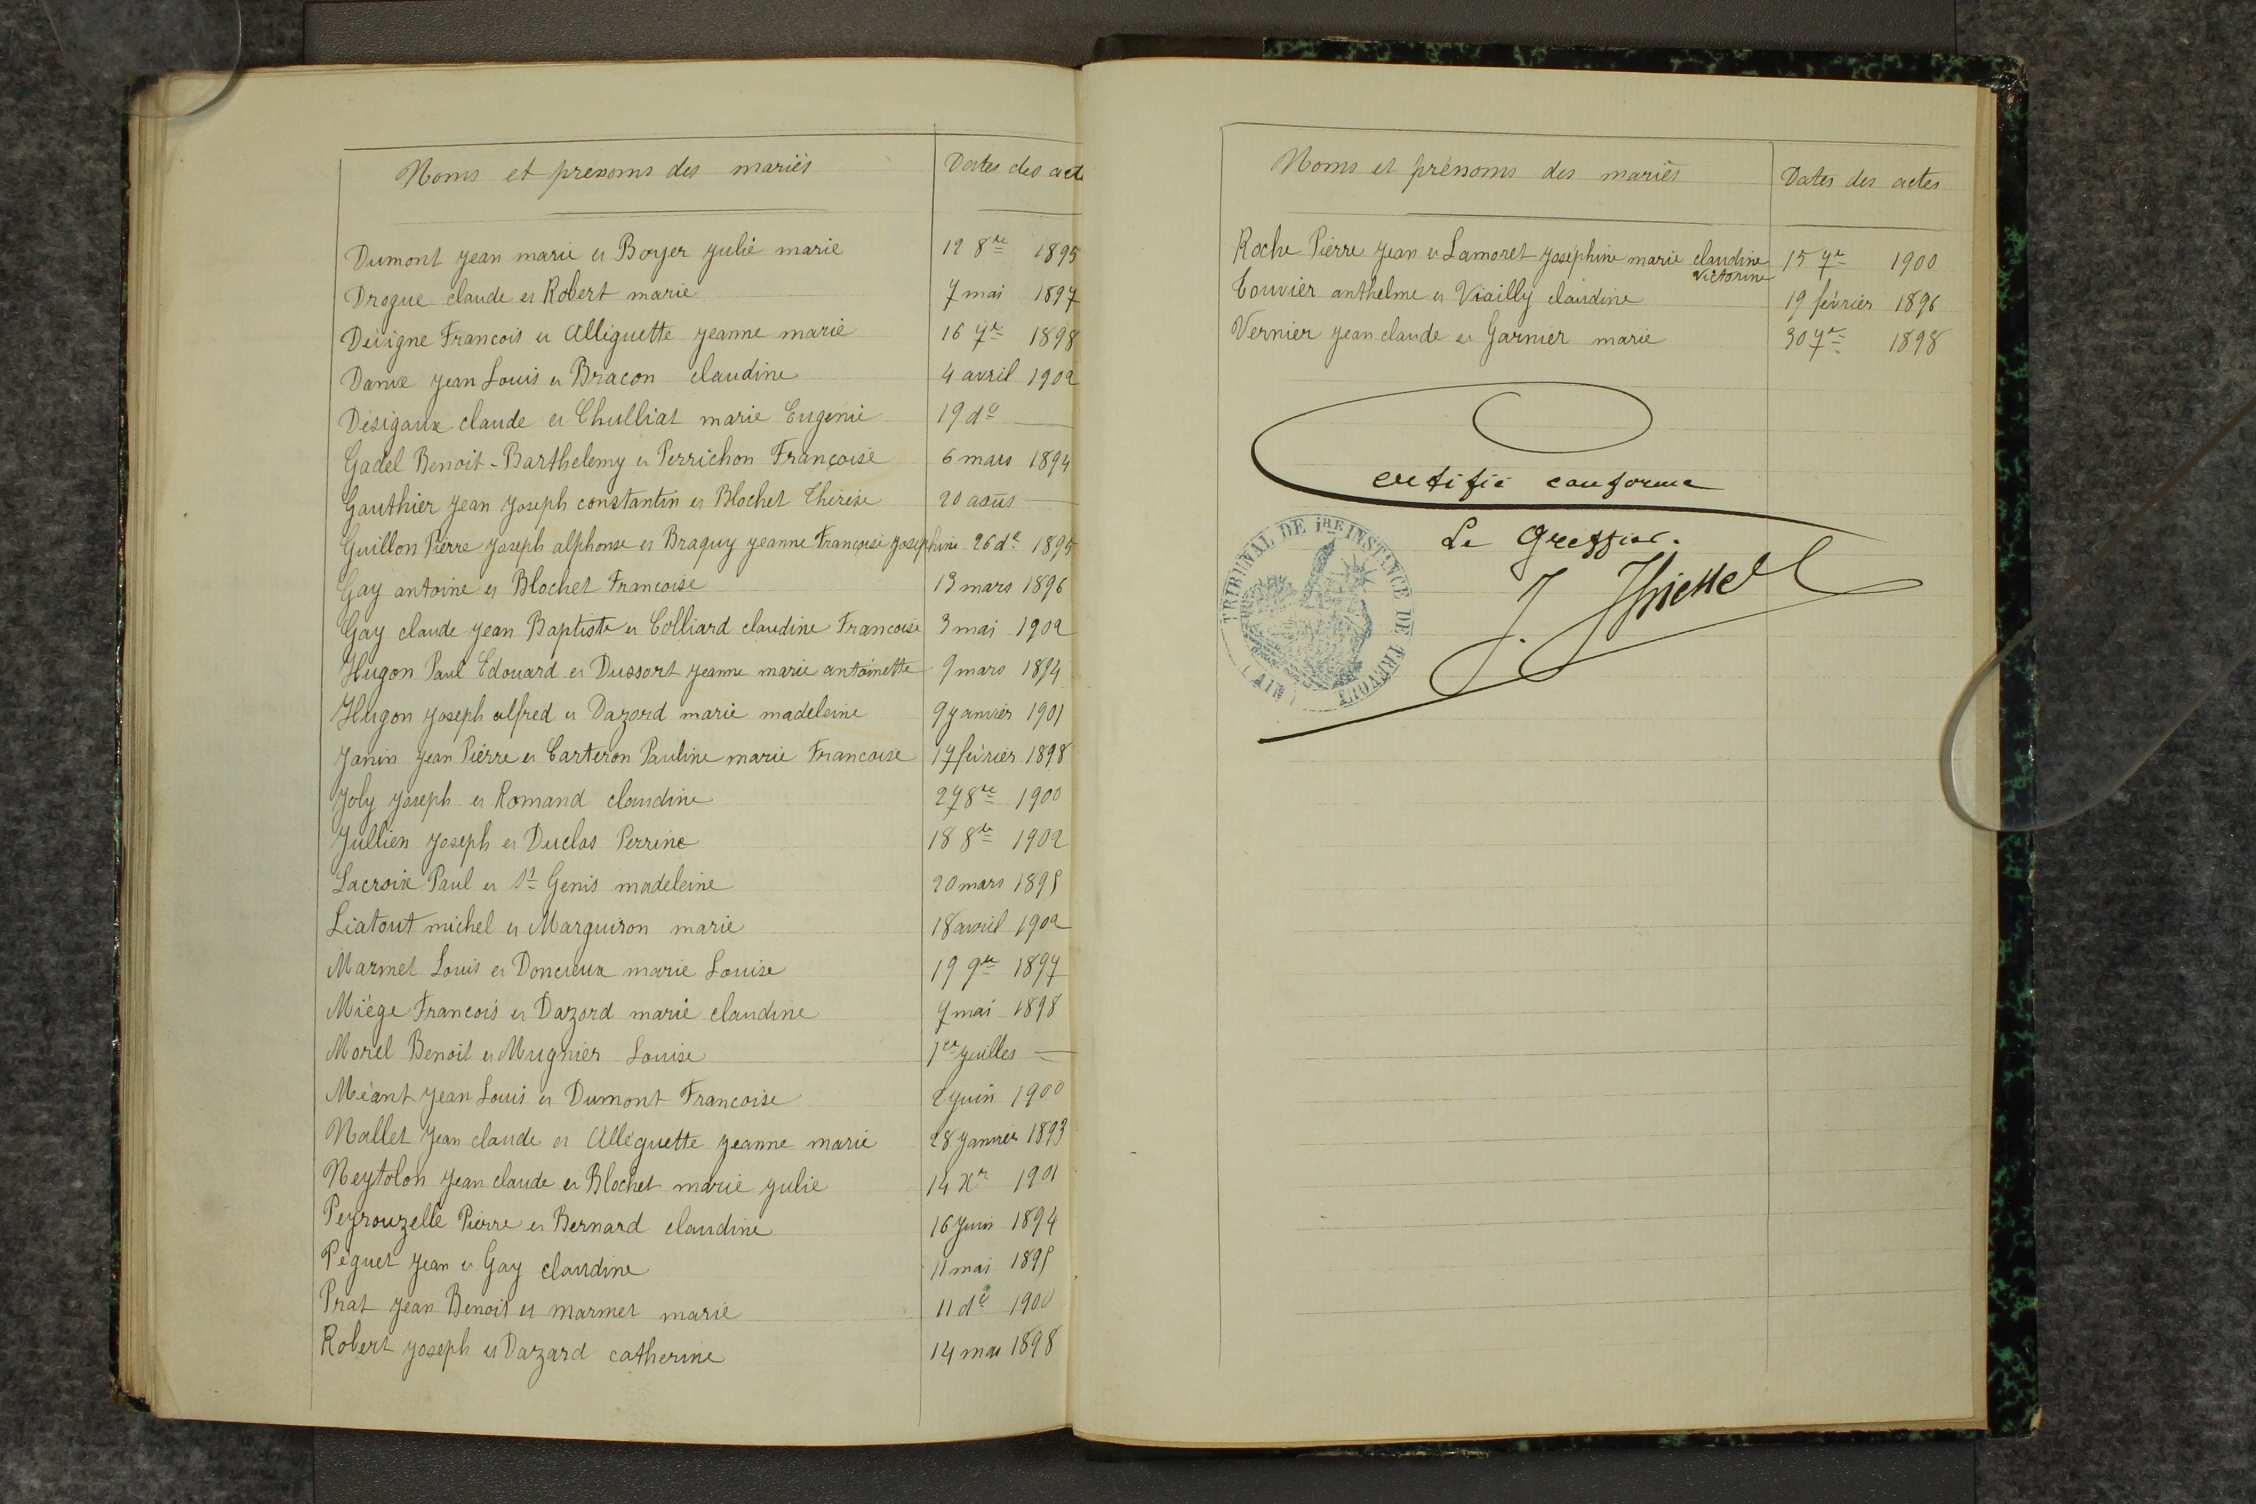 Noms et prénoms des mariés
Dates des acte
Dumont Jean marie et Boyer Julie marie 12 8re 1895
Drogue claude et Robert marie 7 mai 1897
Dévigne François et Alliguette Jeanne marie 16 7re 1898
Danve Jean Louis et Bracon claudine 4 avril 1902
Désigaux claude et Chulliat marie Eugénie 19 do —
Gadel Benoit-Barthelemy et Perrichon Françoise 6 mars 1894
Gauthier Jean Joseph constantin et Blochet Thérèse 20 août —
Guillon Pierre Joseph alphonse et Braguy Jeanne Françoise Joséphine 26 do 1895
Gay antoine et Blochet Francoise 13 mars 1896
Gay claude Jean Baptiste et Colliard claudine Francoise 3 mai 1902
Hugon Paul Edouard et Dussort Jeanne marie antoinette 9 mars 1894
Hugon Joseph alfred et Dazord marie madeleine 9 Janvier 1901
Janin Jean Pierre et Carteron Pauline marie Francoise 17 février 1898
Joly Joseph et Romand claudine 27 8re 1900
Jullien Joseph et Duclos Perrine 18 8re 1902
Lacroix Paul et St Genis madeleine 20 mars 1895
Liatout michel et Marguiron marie 18 avril 1902
Marmet Louis et Doncieux marie Louise 19 9re 1897
Miège Francois et Dazord marie claudine 7 mai 1898
Morel Benoit et Mugnier Louise 1er Juillet —
Méant Jean Louis et Dumont Francoise 2 Juin 1900
Nallet Jean claude et Alléguette Jeanne marie 28 Janvier 1893
Neytolon Jean claude et Blochet marie Julie 14 Xre 1901
Peyrouzelle Pierre et Bernard claudine 16 Juin 1894
Péguet Jean et Gay claudine 11 mai 1895
Prat Jean Benoit et marmet marie 11 do 1900
Robert Joseph et Dazard catherine 14 mai 1898
Noms et prénoms des mariés
Dates des actes
Roche Pierre Jean et Lamoret Joséphine marie claudine 15 7re 1900
Victorine
Touvier anthelme et Viailly claudine 19 février 1896
Vernier Jean claude et Garnier marie 30 7re 1898
Certifié conforme
Le Greffier.
TRIBUNAL DE 1RE INSTANCE DE TREVOUX
(AIN)